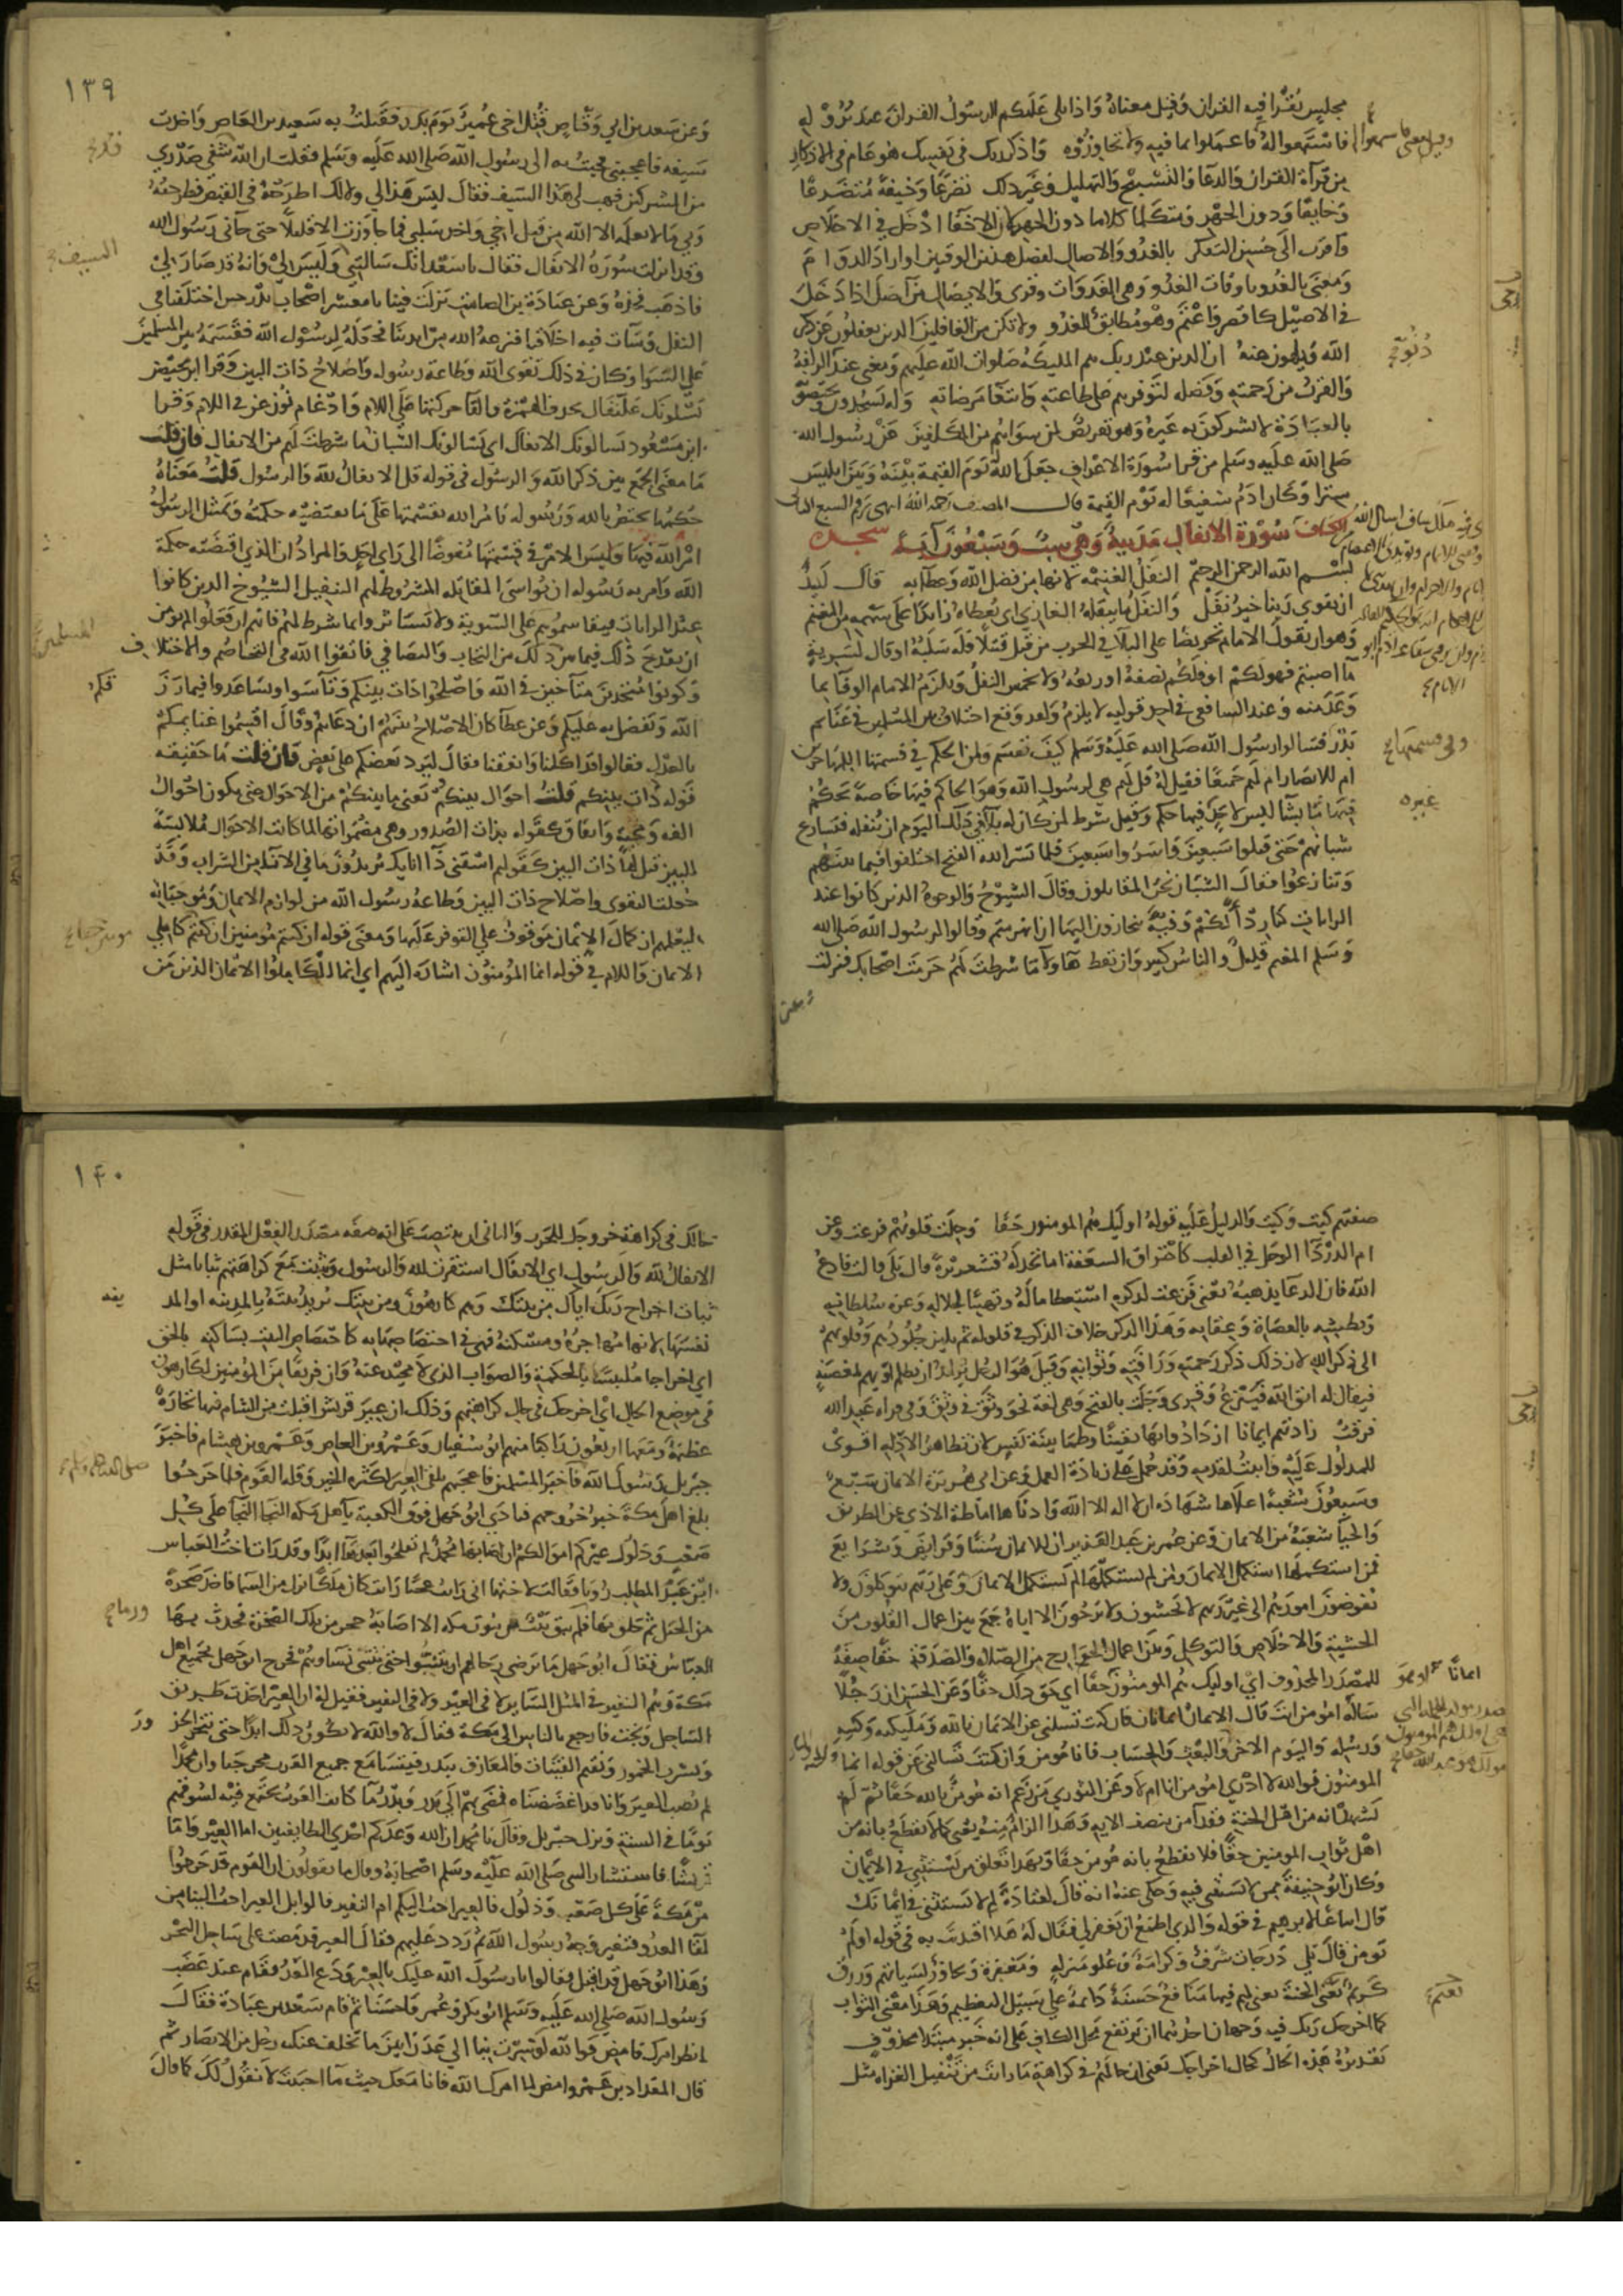 مجلس يقرأ فيه القران وقيل معناه واذا تلى عليكم الرسول القران عند نزوله
فاستمعوا له فاعملوا بما فيه ولا تجاوزوه واذكر ربك في نفسك هو عام في الاذكار
من قرآة القران والدعا والتسبيح والتهليل وغير ذلك تضرعا وخيفة متضرعا
وخايفا ودون الجهر ومتكلما كلاما دون الجهر لان الاخفا ادخل في الاخلاص
واقرب الى حسن التفكر بالغدو والاصال لفضل هذين الوقتين او اراد الدوام
ومعنى بالغدو باوقات الغدو وهي الغدوات وقرى والايصال من آصل اذا دخل
في الاصيل كاقصر واعتم وهو مطابق للغدو ولا تكن من الغافلين الذين يغفلون عن ذكر
الله ويلهون عنه ان الذين عند ربك هم المليكة صلوات الله عليهم ومعنى عند الزلفة
والقرب من رحمته وفضله لتوفرهم على طاعته وابتغا مرضاته وله يسجدون ويختصونه
بالعبادة لا يشركون به غيره وهو تعريض لمن سواهم من المكلفين عن رسول الله
صلى الله عليه وسلم من قرا سورة الاعراف جعل الله يوم القيمة بينه وبين ابليس
سترا وكان ادم شفيعا له يوم القيمة قال المصنف رحمه الله
سورة الانفال مدنية وهي ست وسبعون آية
بسم الله الرحمن الرحيم النفل الغنيمة لانها من فضل الله وعطايه قال لبيد
ان تقوى ربنا خير نفل والنفل ما ينفله الغازي اى يعطاه زايدا على سهمه من المغنم
وهو ان يقول الامام تحريضا على البلا في الحرب من قتل قتيلا فله سلبه او قال لسرية
ما اصبتم فهو لكم او فلكم نصفه او ربعه ولا يخمس النفل ويلزم الامام الوفا بما
وعد منه وعند الشافعي في احد قوليه لا يلزم ولقد وقع اختلاف بين المسلمين في غنايم
بدر فسالوا رسول الله صلى الله عليه وسلم كيف تقسم ولمن الحكم في قسمتها اللمهاجرين
ام للانصار ام لهم جميعا فقيل له قل لهم هي لرسول الله وهو الحاكم فيها خاصة يحكم
فيها ما يشآ ليس لاحد فيها حكم وقيل شرط لمن كان له بلآ في ذلك اليوم ان ينفله فتسارع
شبانهم حتى قتلوا سبعين واسروا سبعين فلما يسر الله الفتح اختلفوا فيما بينهم
وتنازعوا فقال الشبان نحن المقاتلون وقال الشيوخ والوجوه الذين كانوا عند
الرايات كنا ردأ لكم وفية تنحازون اليها ان انهزمتم وقالوا لرسول الله صلى الله
وسلم المغنم قليل والناس كثير وان تعط هاولآ ما شرطت لهم حرمت اصحابك فنزلت
١٣٩
وعن سعد بن ابي وقاص قتل اخى عمير يوم بدر فقتلت به سعيد بن العاص واخذت
سيفه فاعجبني فجيت به الى رسول الله صلى الله عليه وسلم فقلت ان الله شفى صدرى
من المشركين فهب لى هذا السيف فقال ليس هذا لي ولا لك اطرحه في القبض فطرحته
وبي ما لا يعلمه الا الله من قتل اخي واخذ سلبي فما جاوزت الا قليلا حتى جآني رسول الله
وقد انزلت سورة الانفال فقال يا سعد انك سالتني وليس لي وانه قد صار لي
فاذهب فخذه وعن عبادة بن الصامت نزلت فينا يا معشر اصحاب بدر حين اختلفنا في
النفل وسآت فيه اخلاقنا فنزعه الله من ايدينا فجعله لرسول الله فقسمه بين المسلمين
على السوا وكان في ذلك تقوى الله وطاعة رسوله واصلاح ذات البين وقرا ابن محيصن
يسلونك علنفال بحذف الهمزة والقا حركتها على اللام وادغام نون عن في اللام وقرا
ابن مسعود يسالونك الانفال اى يسالونك الشبان ما شرطت لهم من الانفال فان قلت
ما معنى الجمع بين ذكر الله والرسول في قوله قل الانفال لله والرسول قلت معناه
حكمها مختص بالله ورسوله يامر الله بقسمتها على ما تقتضيه حكمته ويمتثل الرسول
امر الله فيها وليس الامر في قسمتها مفوضا الى راي احد والمراد ان الذي اقتضته حكمة
الله وامر به رسوله ان يواسى المقاتلة المشروط لهم التنفيل الشيوخ الذين كانوا
عند الرايات فيقاسموهم على السوية ولا يستاثروا بما شرط لهم فانهم ان فعلوا لم يومن
ان يقدح ذلك فيما بين ذلك من التحاب والتصافي فاتقوا الله في التخاصم والاختلاف
وكونوا متحدين متآخين في الله واصلحوا ذات بينكم وتآسوا وتساعدوا فيما رزقكم
الله وتفضل به عليكم وعن عطآ كان الاصلاح بينهم ان دعاهم وقال اقسموا غنايمكم
بالعدل فقالوا قد اكلنا وانفقنا فقال ليرد بعضكم على بعض فان قلت ما حقيقة
قوله ذات بينكم قلت احوال بينكم يعنى ما بينكم من الاحوال حتى يكون احوال
الفة ومحبة واتفاق كقوله بذات الصدور وهى مضمراتها لما كانت الاحوال ملابسة
للبين قيل لها ذات البين كقولهم اسقنى ذا انايك يريدون ما في الانآ من الشراب وقد
جعلت التقوى واصلاح ذات البين وطاعة رسول الله من لوازم الايمان وموجباته
ليعلمهم ان كمال الايمان موقوف على التوفر عليها ومعنى قوله ان كنتم مومنين ان كنتم كاملي
الايمان واللام في قوله انما المؤمنون اشارة اليهم اي انما الكاملوا الايمان الذين من
صفتهم كيت وكيت والدليل عليه قوله اوليك هم المومنون حقا وجلت قلوبهم فزعت وعن
ام الدردآ الوجل في القلب كاحتراق السعفة اما تجد له قشعريرة قال بلى قالت فادع
الله فان الدعآ يذهبه يعنى فزعت لذكره استعظاما له وتهيبا لجلاله وعزة سلطانه
وبطشه بالعصاة وعقابه وهذا الذكر خلاف الذكر في قوله ثم تلين جلودهم وقلوبهم
الى ذكر الله لان ذلك ذكر رحمته ورافته وثوابه وقيل هو الرجل يريد ان يظلم او يهم لمعصية
فيقال له اتق الله فينزع وقرى وجلت بالفتح وهى لغة نحو وثق في وثق وفي قراه عبد الله
فرقت زادتهم ايمانا ازدادوا بها يقينا وطمانينة نفس لان تظاهر الادلة اقوى
للمدلول عليه واثبت لقدمه وقد حمل على زيادة العمل وعن ابى هريرة الايمان سبع
وسبعون شعبة اعلاها شهادة ان لا اله الا الله وادناها اماطة الاذى عن الطريق
والحيآ شعبة من الايمان وعن عمر بن عبد العزيز ان للايمان سننا وفرايض وشرايع
فمن استكملها استكمل الايمان ومن لم يستكملها لم يستكمل الايمان وعلى ربهم يتوكلون ولا
يفوضون امورهم الى غير ربهم لا يخشون ولا يرجون الا اياه جمع بين اعمال القلوب من
الخشية والاخلاص والتوكل وبين اعمال الجوارح من الصلاة والصدقة حقا صفة
للمصدر المحذوف اي اوليك هم المومنون حقا اي حق ذلك حقا وعن الحسن ان رجلا
ساله امومن انت قال الايمان ايمانان فان كنت تسلنى عن الايمان بالله ومليكته وكتبه
ورسله واليوم الاخر والبعث والحساب فانا مومن وان كنت تسالنى عن قوله انما
المومنون فوالله لا ادرى امومن انا ام لا وعن الثوري من زعم انه مومن بالله حقا ثم لم
يشهد انه من اهل الجنة فقد آمن بنصف الاية وهذا الزام منه يعنى كما لا يقطع بانه من
اهل ثواب المومنين حقا فلا يقطع بانه مومن حقا وبهذا تعلق من يستثنى في الايمان
وكان ابو حنيفة ممن لا يستثنى فيه وحكى عنه انه قال لقتادة لم لا تستثنى في ايمانك
قال اتباعا لابرهيم في قوله والذي اطمع ان يغفر لي فقال له هلا اقتديت به في قوله اولم
تومن قال بلى درجات شرف وكرامة وعلو منزلة ومغفرة وتجاوز لسياتهم ورزق
كريم نعيم الجنة يعنى لهم فيها منافع حسنة دايمة على سبيل التعظيم وهذا معنى الثواب
كما اخرجك ربك فيه وجهان احدهما ان يرتفع محل الكاف على انه خبر مبتدا محذوف
تقديره هذه الحال كحال اخراجك يعنى ان حالهم في كراهة ما رايت من تنفيل الغزاه مثل
١٤٠
حالك في كراهة خروجك للحرب والثانى ان ينتصب على انه صفة مصدر الفعل المقدر في قوله
الانفال لله والرسول اي الانفال استقرت لله والرسول وثبتت مع كراهتهم ثباتا مثل
ثبات اخراج ربك اياك من بيتك وهم كارهون ومن بيتك يريد بيته بالمدينة او المدينة
نفسها لانها مهاجره ومسكنه فهى في اختصاصها به كاختصاص البيت بساكنه بالحق
اي اخراجا ملتبسا بالحكمة والصواب الذي لا محيد عنه وان فريقا من المؤمنين لكارهون
في موضع الحال اى اخرجك في حال كراهتهم وذلك ان عير قريش اقبلت من الشام فيها تجارة
عظيمة ومعها اربعون راكبا منهم ابو سفيان وعمرو بن العاص وعمرو بن هشام فاخبر
جبريل رسول الله فآخبر المسلمين فاعجبهم تلقى العير لكثرة الخير وقلة القوم فلما خرجوا
بلغ اهل مكة خبر خروجهم فنادى ابو جهل فوق الكعبة يآهل مكة النجا النجآ على كل
صعب وذلول عيركم اموالكم ان اصابها محمد لم تفلحوا بعدها ابدا وقد رات اخت العباس
ابن عبد المطلب رؤيا فقالت لاخيها انى رايت عجبا رايت كان ملكا نزل من السما فاخذ صخرة
من الجبل ثم حلق بها فلم يبق بيت من بيوت مكة الا اصابه حجر من تلك الصخرة فحدث بها
العباس فقال ابو جهل ما ترضى رجالهم ان يتنبوا حتى تتنبى نساوهم فخرج ابو جهل بجميع اهل
مكة وهم النفير في المثل الساير لا في العير ولا في النفير فقيل له ان العير اخذت طريق
الساحل ونجت فارجع بالناس الى مكة فقال لا والله لا يكون ذلك ابدا حتى ننحر الجزور
ونشرب الخمور ونقيم القينات والمعازف ببدر فيتسامع جميع العرب بمخرجنا وان محمدا
لم يصب العير وانا قد اغضضناه فمضى بهم الى بدر وبدر مآ كانت العرب تجتمع فيه لسوقهم
يوما في السنة ونزل جبريل وقال يا محمد ان الله وعدكم احدى الطايفتين اما العير واما
قريشا فاستشار النبى صلى الله عليه وسلم اصحابه وقال ما تقولون ان القوم قد خرجوا
من مكة على كل صعب وذلول فالعير احب اليكم ام النفير قالوا بل العير احب الينا من
لقآ العدو فتغير وجه رسول الله ثم ردد عليهم فقال العير قد مضت على ساحل البحر
وهذا ابو جهل قد اقبل فقالوا يا رسول الله عليك بالعير ودع العدو فقام عند غضب
رسول الله صلى الله عليه وسلم ابو بكر وعمر فاحسنا ثم قام سعد بن عبادة فقال
انظر امرك فامض فوالله لو سرت بنا الي عدن ابين ما تخلف عنك رجل من الانصار ثم
قال المقداد بن عمرو امض لما امرك الله فانا معك حيث مآ احببت لا نقول لك كما قال